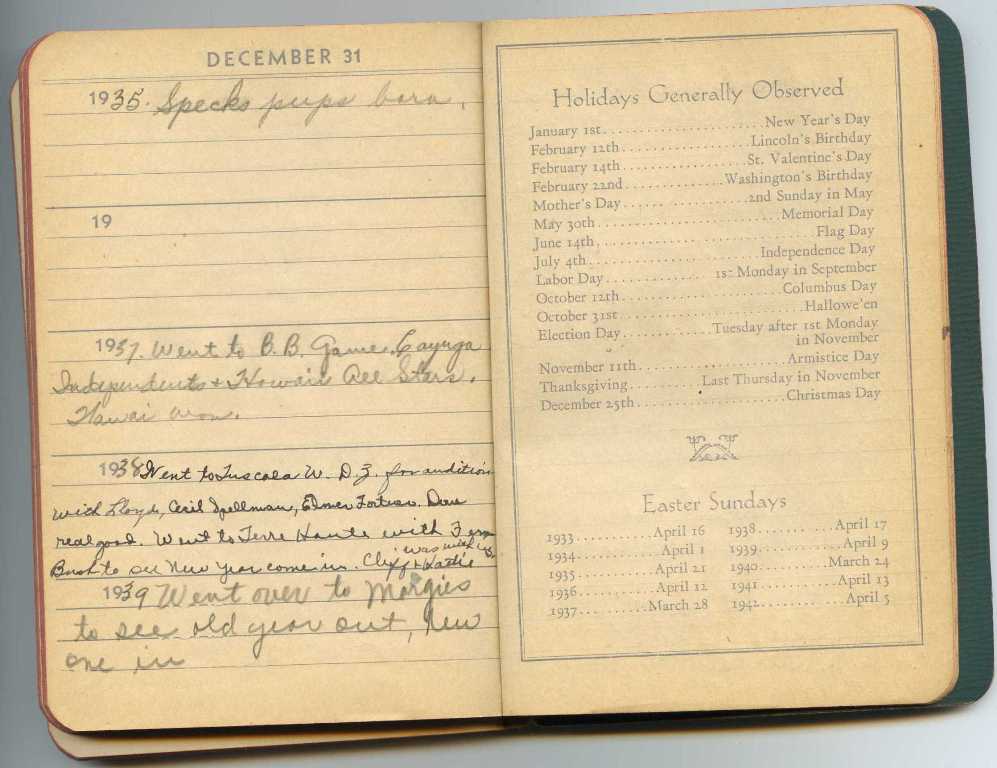 DECEMBER 31
1935. Specks pups born.
19
1937. Went to B.B. Game. Cayuga
Independents + Hawaii All Stars.
Hawai won.
1938 Went to Tuscola W.D.Z. for audition
with Lloyd, Cecil Spellman, Elmer Fortier. Done
real good. Went to Terre Haute with Fern
was with us
Bush to see New Year come in. Cliff + Hattie
1939 Went over to Margies
to see old year out, new
one in
Holidays Generally Observed
January 1st.....................New Year's Day
February 12th.................Lincoln's Birthday
February 14th.................St. Valentine's Day
February 22nd.............Washington's Birthday
Mother's Day.................2nd Sunday in May
May 30th...........................Memorial Day
June 14th................................Flag Day
July 4th........................Independence Day
Labor Day.............1st Monday in September
October 12th.......................Columbus Day
October 31st..........................Hallowe'en
Election Day............Tuesday after 1st Monday
in November
November 11th.....................Armistice Day
Thanksgiving..........Last Thursday in November
December 25th.....................Christmas Day
Easter Sundays
1933...........April 16 1938...........April 17
1934...........April 1 1939...........April 9
1935...........April 21 1940...........March 24
1936...........April 12 1941...........April 13
1937...........March 28 1942...........April 5